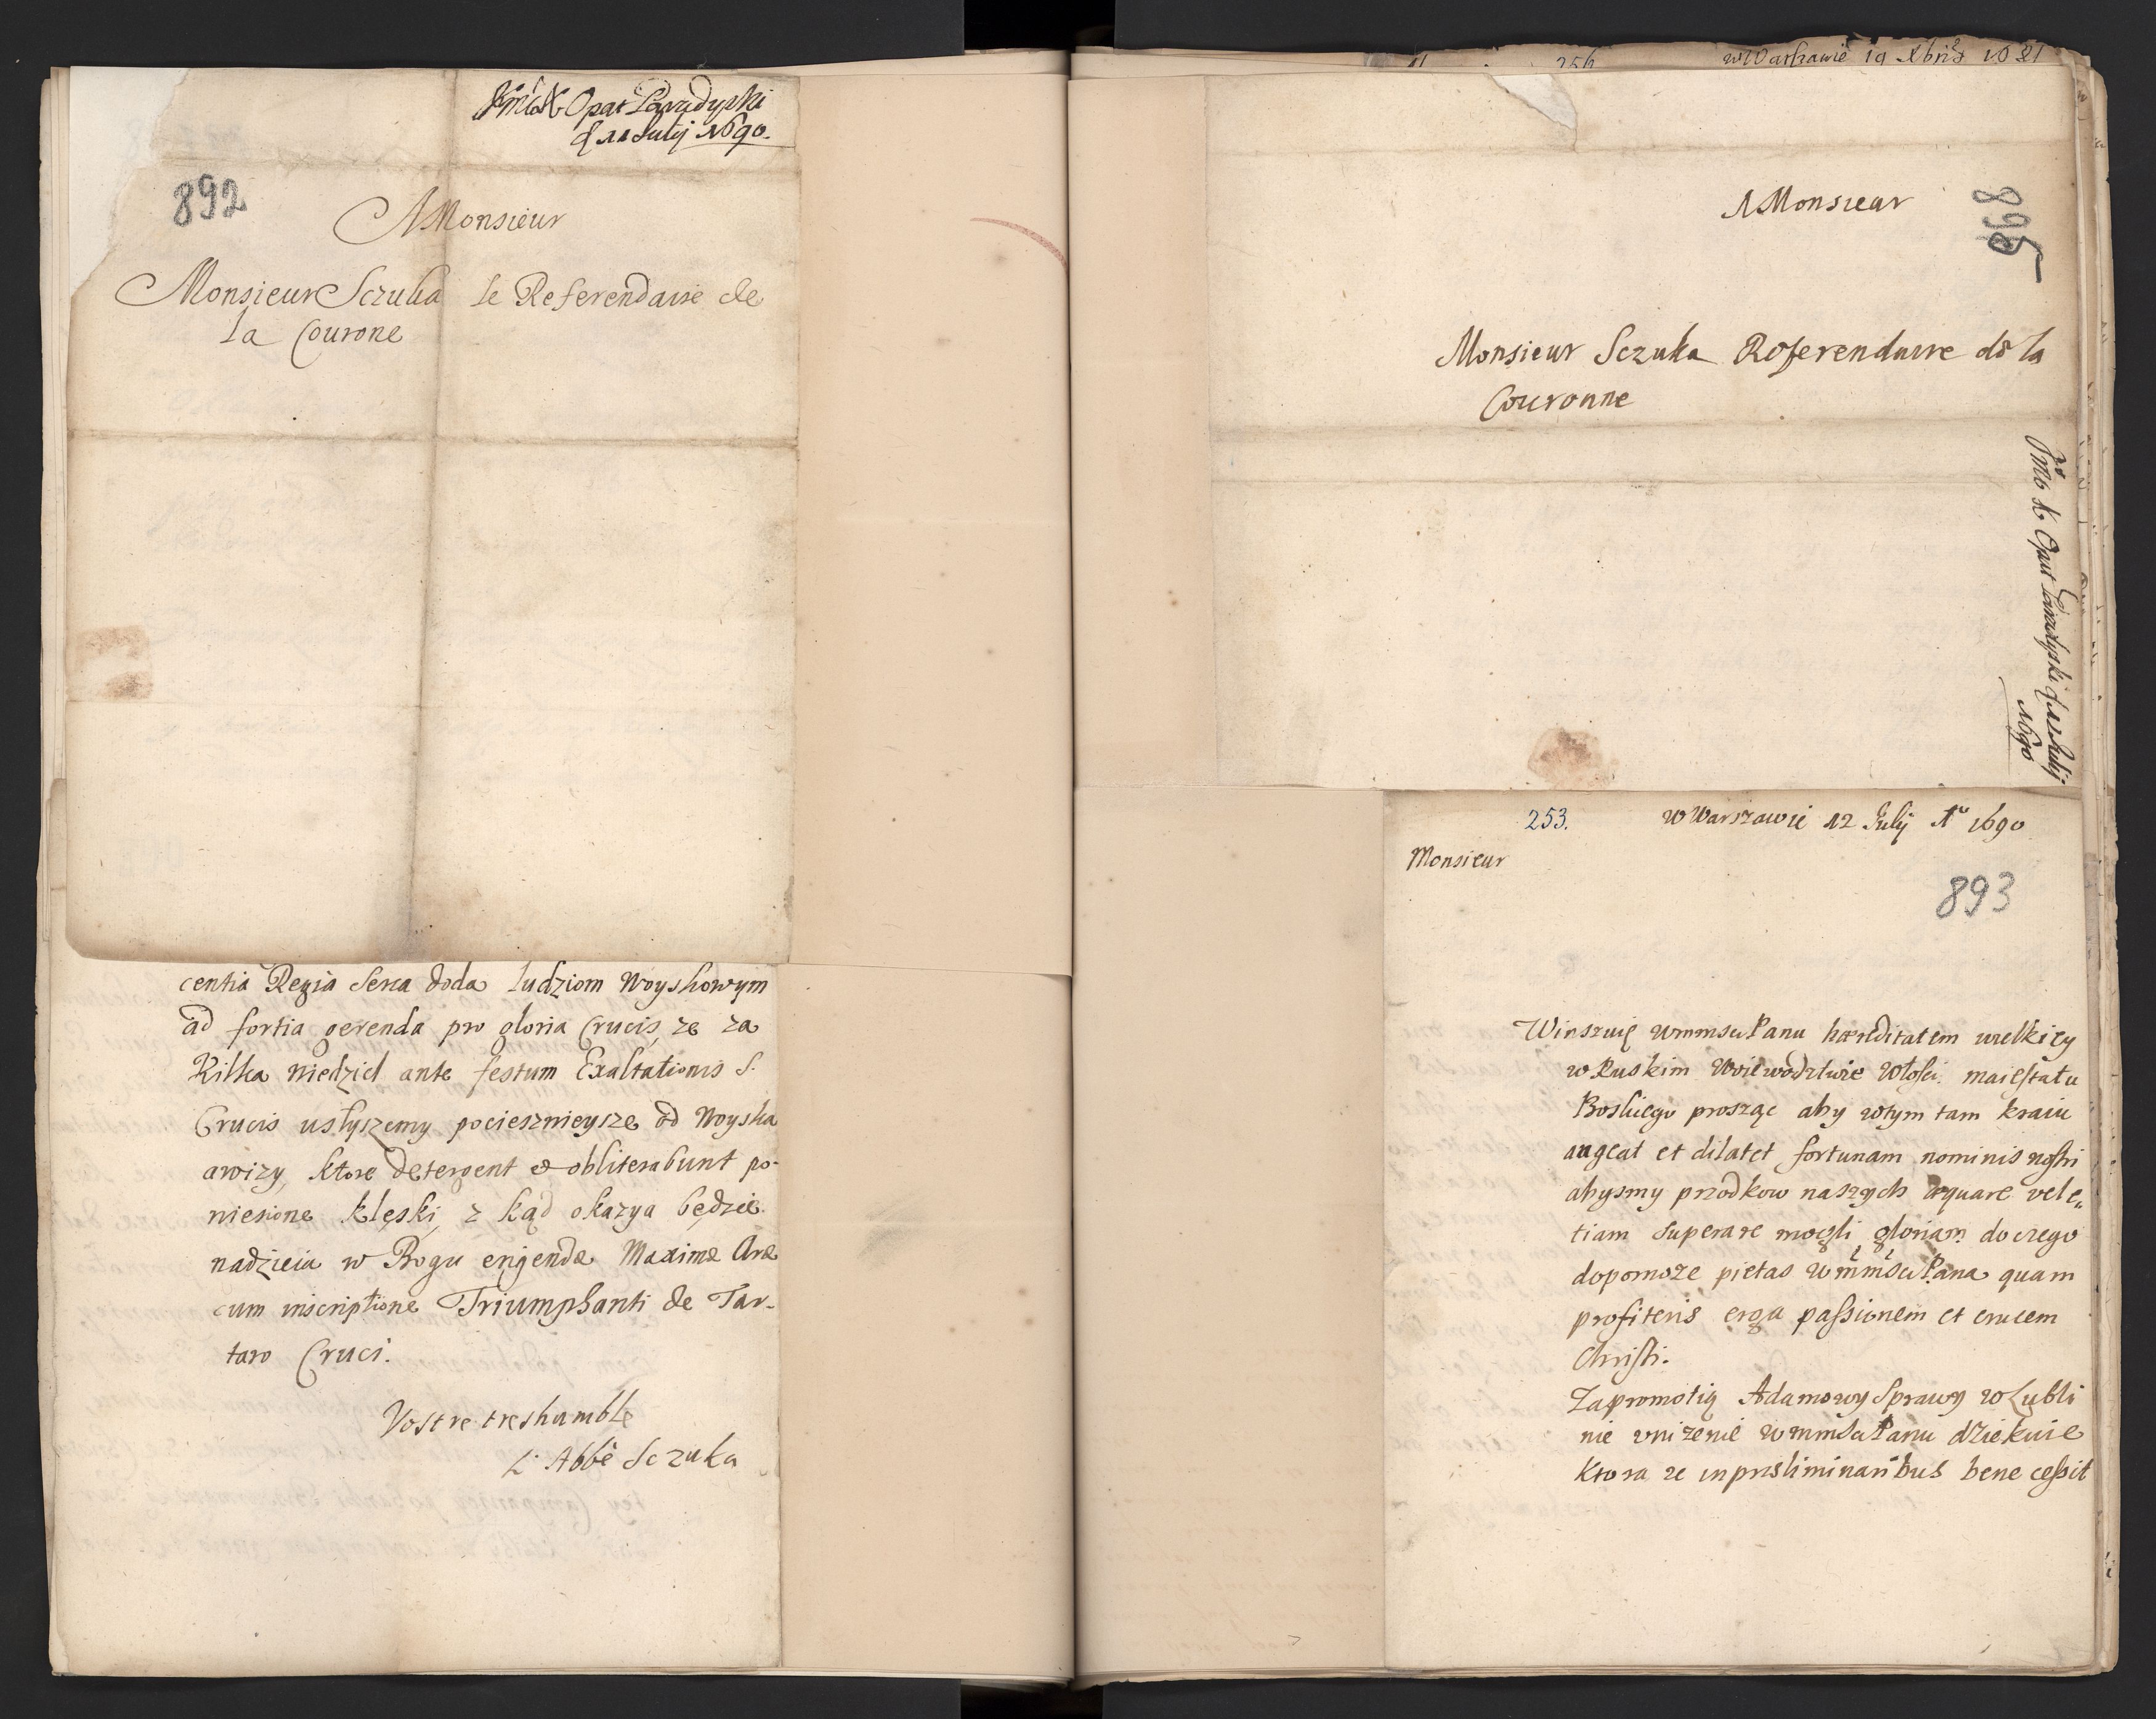 Opat Paradyski
d 11 Julij 1690.
892
A Monsieur
Monsieur Sczuka le Referendaire de
la Courone
centia Regia serca doda ludziom Woyskowym
ad fortia gerenda pro gloria Crucis, ze za
Kilka niedziel ante festum Exaltationis S.
Crucis usłyszemy pociesznieysze od Woyska
awizy, ktore detergent et obliterabunt po-
niesione klęski, z kąd okazya będzie
nadzieia w Bogu erigendæ Maximæ Aræ
cum inscriptione Triumphanti de Tar-
taro Cruci.
Vostre treshumble
L'Abbé Sczuka
256 w Warszawie 19 Xbris
A Monsieur
895
Monsieur Sczuka Referendaire de la
Couronne
Opat Paradyski d 12 Julij
1690
253. w Warszawie 12 Julij Aº 1690
Monsieur
893
Winszuię wmmsci Panu hæreditatem wielkiey
w Ruskim Woiewodztwie Włosci. maiestatu
Boskiego prosząc aby wtym tam kraiu
augeat et dilatet fortunam nominis nostri
abysmy przodkow naszych æquare vel e„
tiam superare mogli gloriam do czego
dopomoze pietas wmmsci Pana quam
profiteris erga passionem et crucem
Christi.
Za promotią Adamowy Sprawy w Lubli
nie unizenie wmmsci Panu dziekuie
Ktora ze in præliminaribus bene cessit